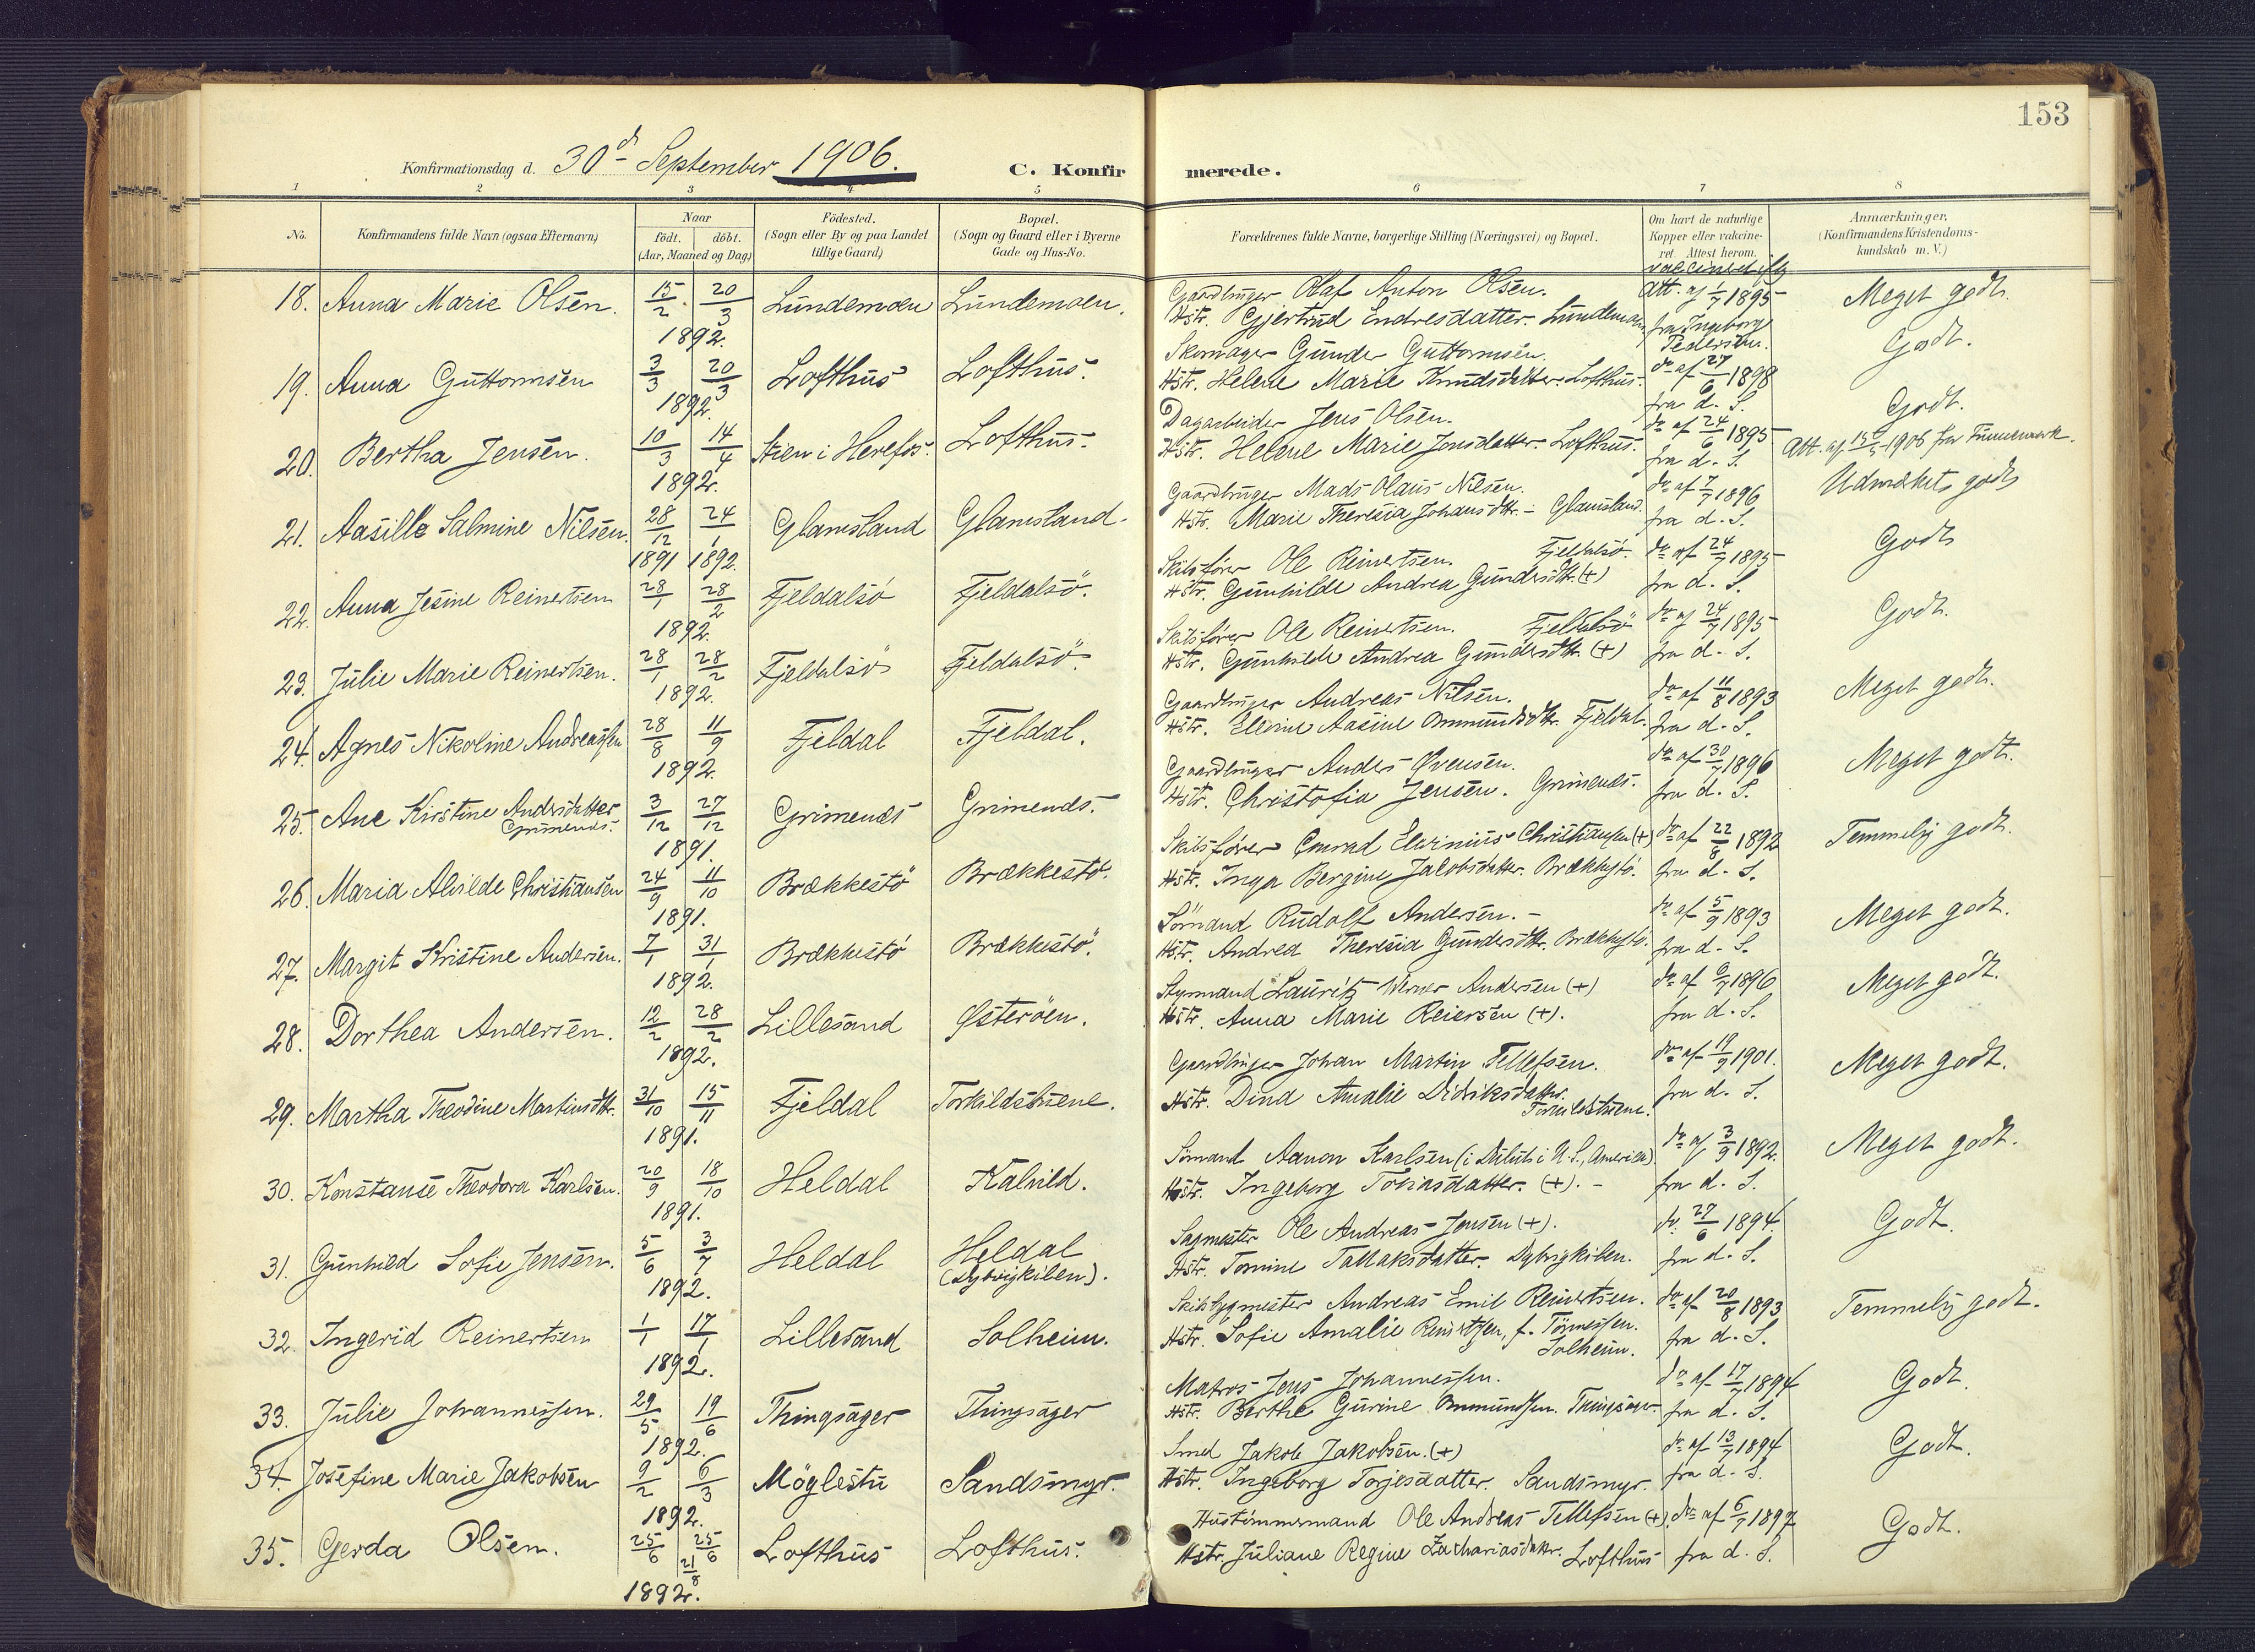 153
Konfirmationsdag d. 30d September 1906.
C. Konfirmerede.
1 2 3 4 5 6 7 8
No.
Konfirmandens fulde Navn (ogsaa Efternavn)
Naar
født. døbt.
(Aar, Maaned og Dag)
Fødested.
(Sogn eller By og paa Landet
tillige Gaard)
Bopæl.
(Sogn og Gaard eller i Byerne
Gade og Hus-No.
Forældrenes fulde Navne, borgerlige Stilling (Næringsvei) og Bopæl.
Om havt de naturlige
Kopper eller vakcine-
ret. Attest herom.
Anmærkninger,
(Konfirmandens Kristendoms-
kundskab m. V.)
18. Anna Marie Olsen. 15/2 20/3 1892. Lundemoen Lundemoen.
Gaardbruger Olaf Anton Olsen.
Hstr. Gjertrud Endresdatter. Lundemoen
Att. af 1/7 1895 fra Ingeborg Pedersen. Meget godt.
19. Anna Guttormsen 3/3 20/3 1892. Lofthus Lofthus.
Skomager Gunder Guttormsen.
Hstr. Helene Marie Knudsdatter. Lofthus.
do af 27/6 1898 fra d. S. Godt.
20. Bertha Jensen. 10/3 14/4 1892. i Herefos. Lofthus.
Dagarbeider Jens Olsen.
Hstr. Helene Marie Jonsdatter. Lofthus.
do af 24/6 1895 fra d. S. Godt.
Att. af 1906 fra
21. Aasille Salmine Nilsen. 28/12 1891 24/1 1892. Glamsland Glamsland.
Gaardbruger Mads Olaus Nilsen.
Hstr. Marie Theresia Johansdtr. - Glamsland.
do af 7/7 1896 fra d. S. Udmærket godt
22. Anna Jesine Reinertsen 28/1 28/2 1892. Fjeldalsö Fjeldalsö.
Skibsfører Ole Reinertsen. Fjeldalsö.
Hstr. Gunhilde Andrea Gundersdtr. (+)
do af 24/7 1895 fra d. S. Godt
23. Julie Marie Reinertsen. 28/1 28/2 1892. Fjeldalsö Fjeldalsö.
Skibsfører Ole Reinertsen. Fjeldalsö
Hstr. Gunhilde Andrea Gundersdtr. (+)
do af 24/7 1895 fra d. S. Godt.
24. Agnes Nikoline Andreassen 28/8 11/9 1892. Fjeldal Fjeldal.
Gaardbruger Andreas Nilsen.
Hstr. Elevine Aasine Ommundsdtr. Fjeldal.
do af 11/8 1893 fra d. S. Meget godt.
25. Ane Kirstine Andersdatter Grimenes. 3/12 27/12 1891. Grimenes Grimenes.
Gaardbruger Anders Øvensen.
Hstr. Christofia Jensen. Grimenes.
do af 30/7 1896 fra d. S. Meget godt.
26. Maria Alvilde Christiansen 24/9 11/10 1891. Brækkestö Brækkestö.
Skibsfører Conrad Elevinius Christiansen (+)
Hstr. Inga Bergine Jacobsdatter. Brækkestö.
do af 22/8 1892 fra d. S. Temmelig godt.
27. Margit Kristine Andersen. 7/1 31/1 1892. Brækkestö Brækkestö.
Sömand Rudolf Andersen. -
Hstr. Andrea Theresia Gundersdtr. Brækkestö.
do af 5/9 1893 fra d. S. Meget godt.
28. Dorthea Andersen. 12/2 28/2 1892. Lillesand Østeröen.
Styrmand Lauritz Werner Andersen (+)
Hstr. Anna Marie Reiersen (+).
do af 9/7 1896 fra d. S. Meget godt.
29. Martha Theodine Martinsdtr. 31/10 15/11 1891. Fjeldal Torkildstuene.
Gaardbruger Johan Martin Tellefsen.
Hstr. Dina Amalie Didriksdatter. Torkildstuene.
do af 19/9 1901. fra d. S. Meget godt.
30. Konstanse Theodora Karlsen. 20/9 18/10 1891. Heldal Kalvild.
Sömand Aanon Karlsen (i Duluth i U. S., Amerika).
Hstr. Ingeborg Tobiasdatter. (+). -
do af 3/9 1892. fra d. S. Meget godt.
31. Gunhild Sofie Jensen. 5/6 3/7 1892. Heldal Heldal (Dybvigkilen).
Sagmester Ole Andreas Jensen (+).
Hstr. Tomine Tallaksdatter. Dybvigkilen.
do. 27/6 1894. fra d. S. Godt.
32. Ingerid Reinertsen 1/1 17/1 1892. Lillesand Solheim.
Skibsbygmester Andreas Emil Reinertsen.
Hstr. Sofie Amalie Reinertsen, f. Tönnessen. Solheim.
do af 20/8 1893 fra d. S. Temmelig godt.
33. Julie Johannessen. 29/5 19/6 1892. Thingsager Thingsager
Matros Jens Johannessen.
Hstr. Berthe Gurine Ommundsen. Thingsager.
do af 17/7 1894 fra d. S. Godt.
34. Josefine Marie Jakobsen 9/2 6/3 1892. Möglestu Sandsmyr.
Smed Jakob Jakobsen. (+)
Hstr. Ingeborg Torjesdatter. Sandsmyr.
do af 13/7 1894 fra d. S. Godt.
35. Gerda Olsen. 25/6 25/6 21/8 1892. Lofthus Lofthus.
Hustömmermand Ole Andreas Tellefsen (+).
Hstr. Juliane Regine Zachariasdatter. Lofthus
do af 6/7 1897 fra d. S. Godt.